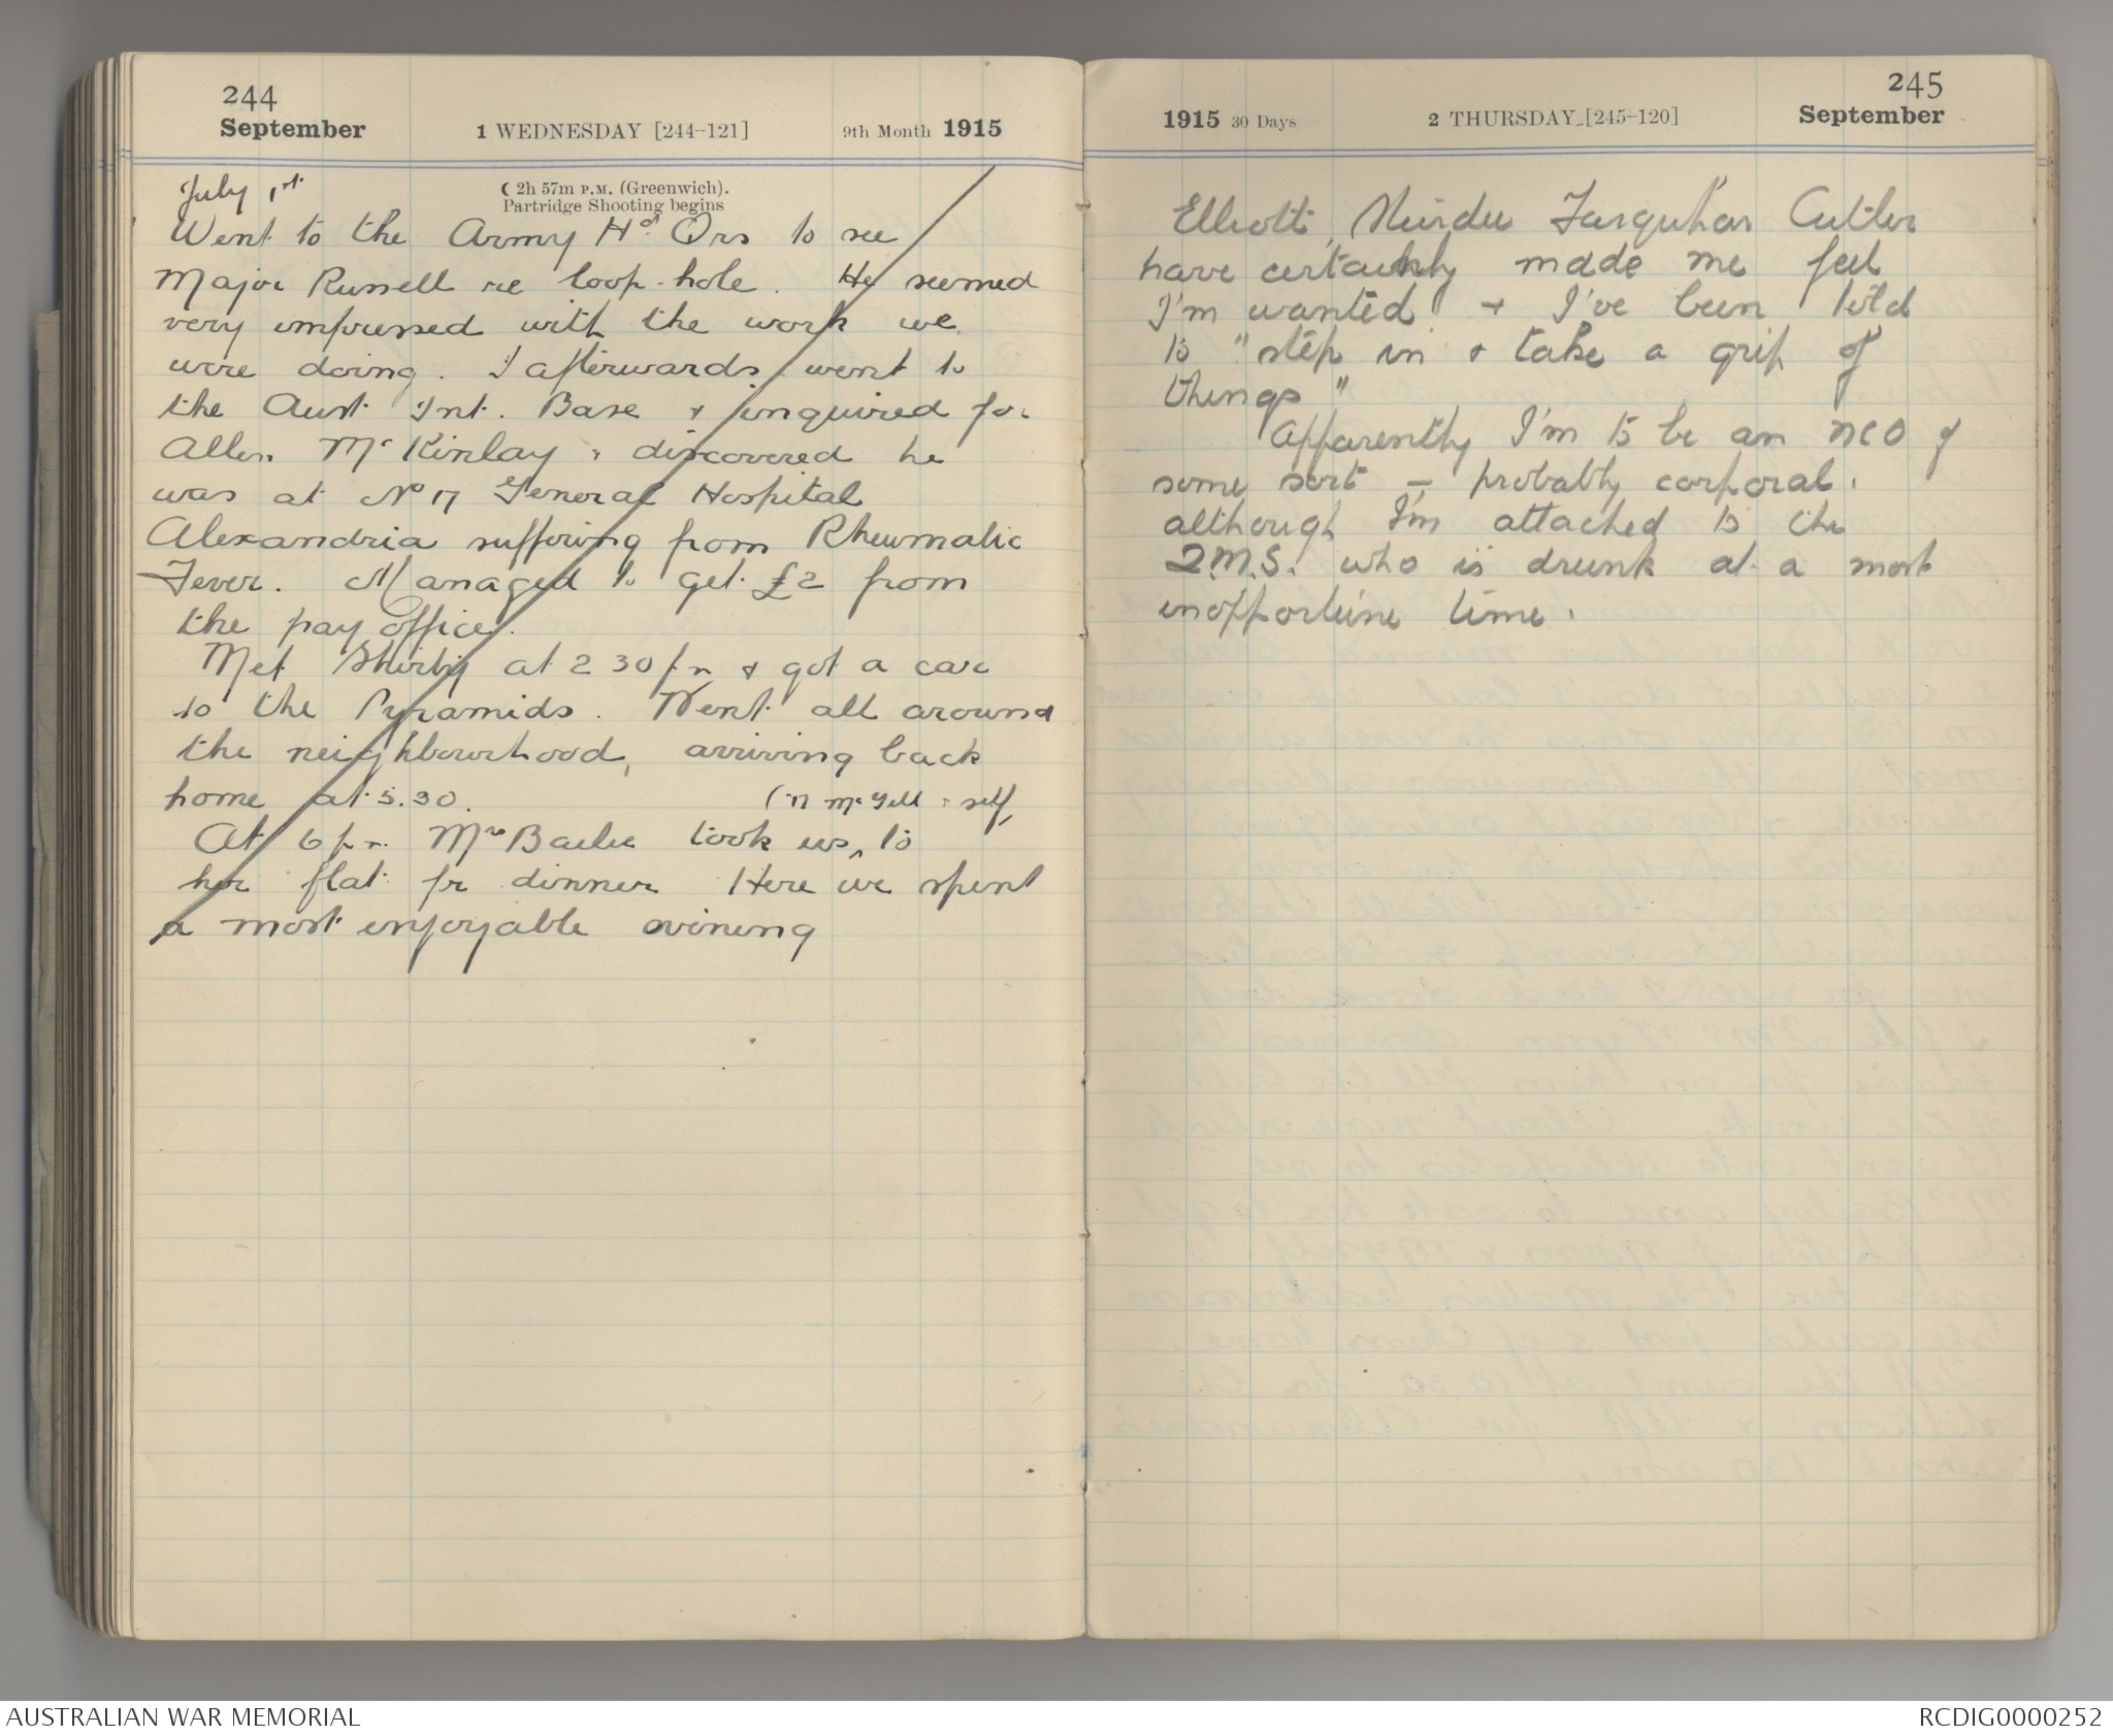 244
September
1 WEDNESDAY [244-121]
9th Month 1915
July 1st
☾ 2h 57m P.M. (Greenwich).
Partridge Shooting begins
Went to the Army Hd. Qrs to see
Major Russell re loop-hole. He seemed
very impressed with the work we
were doing. I afterwards went to
the Aust. Int. Base & inquired for
Allen McKinlay & discovered he
was at No 17 General Hospital
Alexandria suffering from Rheumatic
Fever. Managed to get £2 from
the pay office.
Met at 2 30 pm & got a car
to the Pyramids. Went all around
the neighbourhood, arriving back
home at 5.30.
& self
At 6 pm. Mrs Bailie took us ^ to
her flat for dinner Here we spent
a most enjoyable evening
245
1915 30 Days
2 THURSDAY [245-120]
September
Elliott, Farquhar Cutler
have certainly made me feel
I'm wanted & I've been told
to "step in & take a grip of
things"
Apparently I'm to be an NCO of
some sort – probably corporal.
although I'm attached to the
Q.M.S. who is drunk at a most
inopportune time.
AUSTRALIAN WAR MEMORIAL
RCDIG0000252